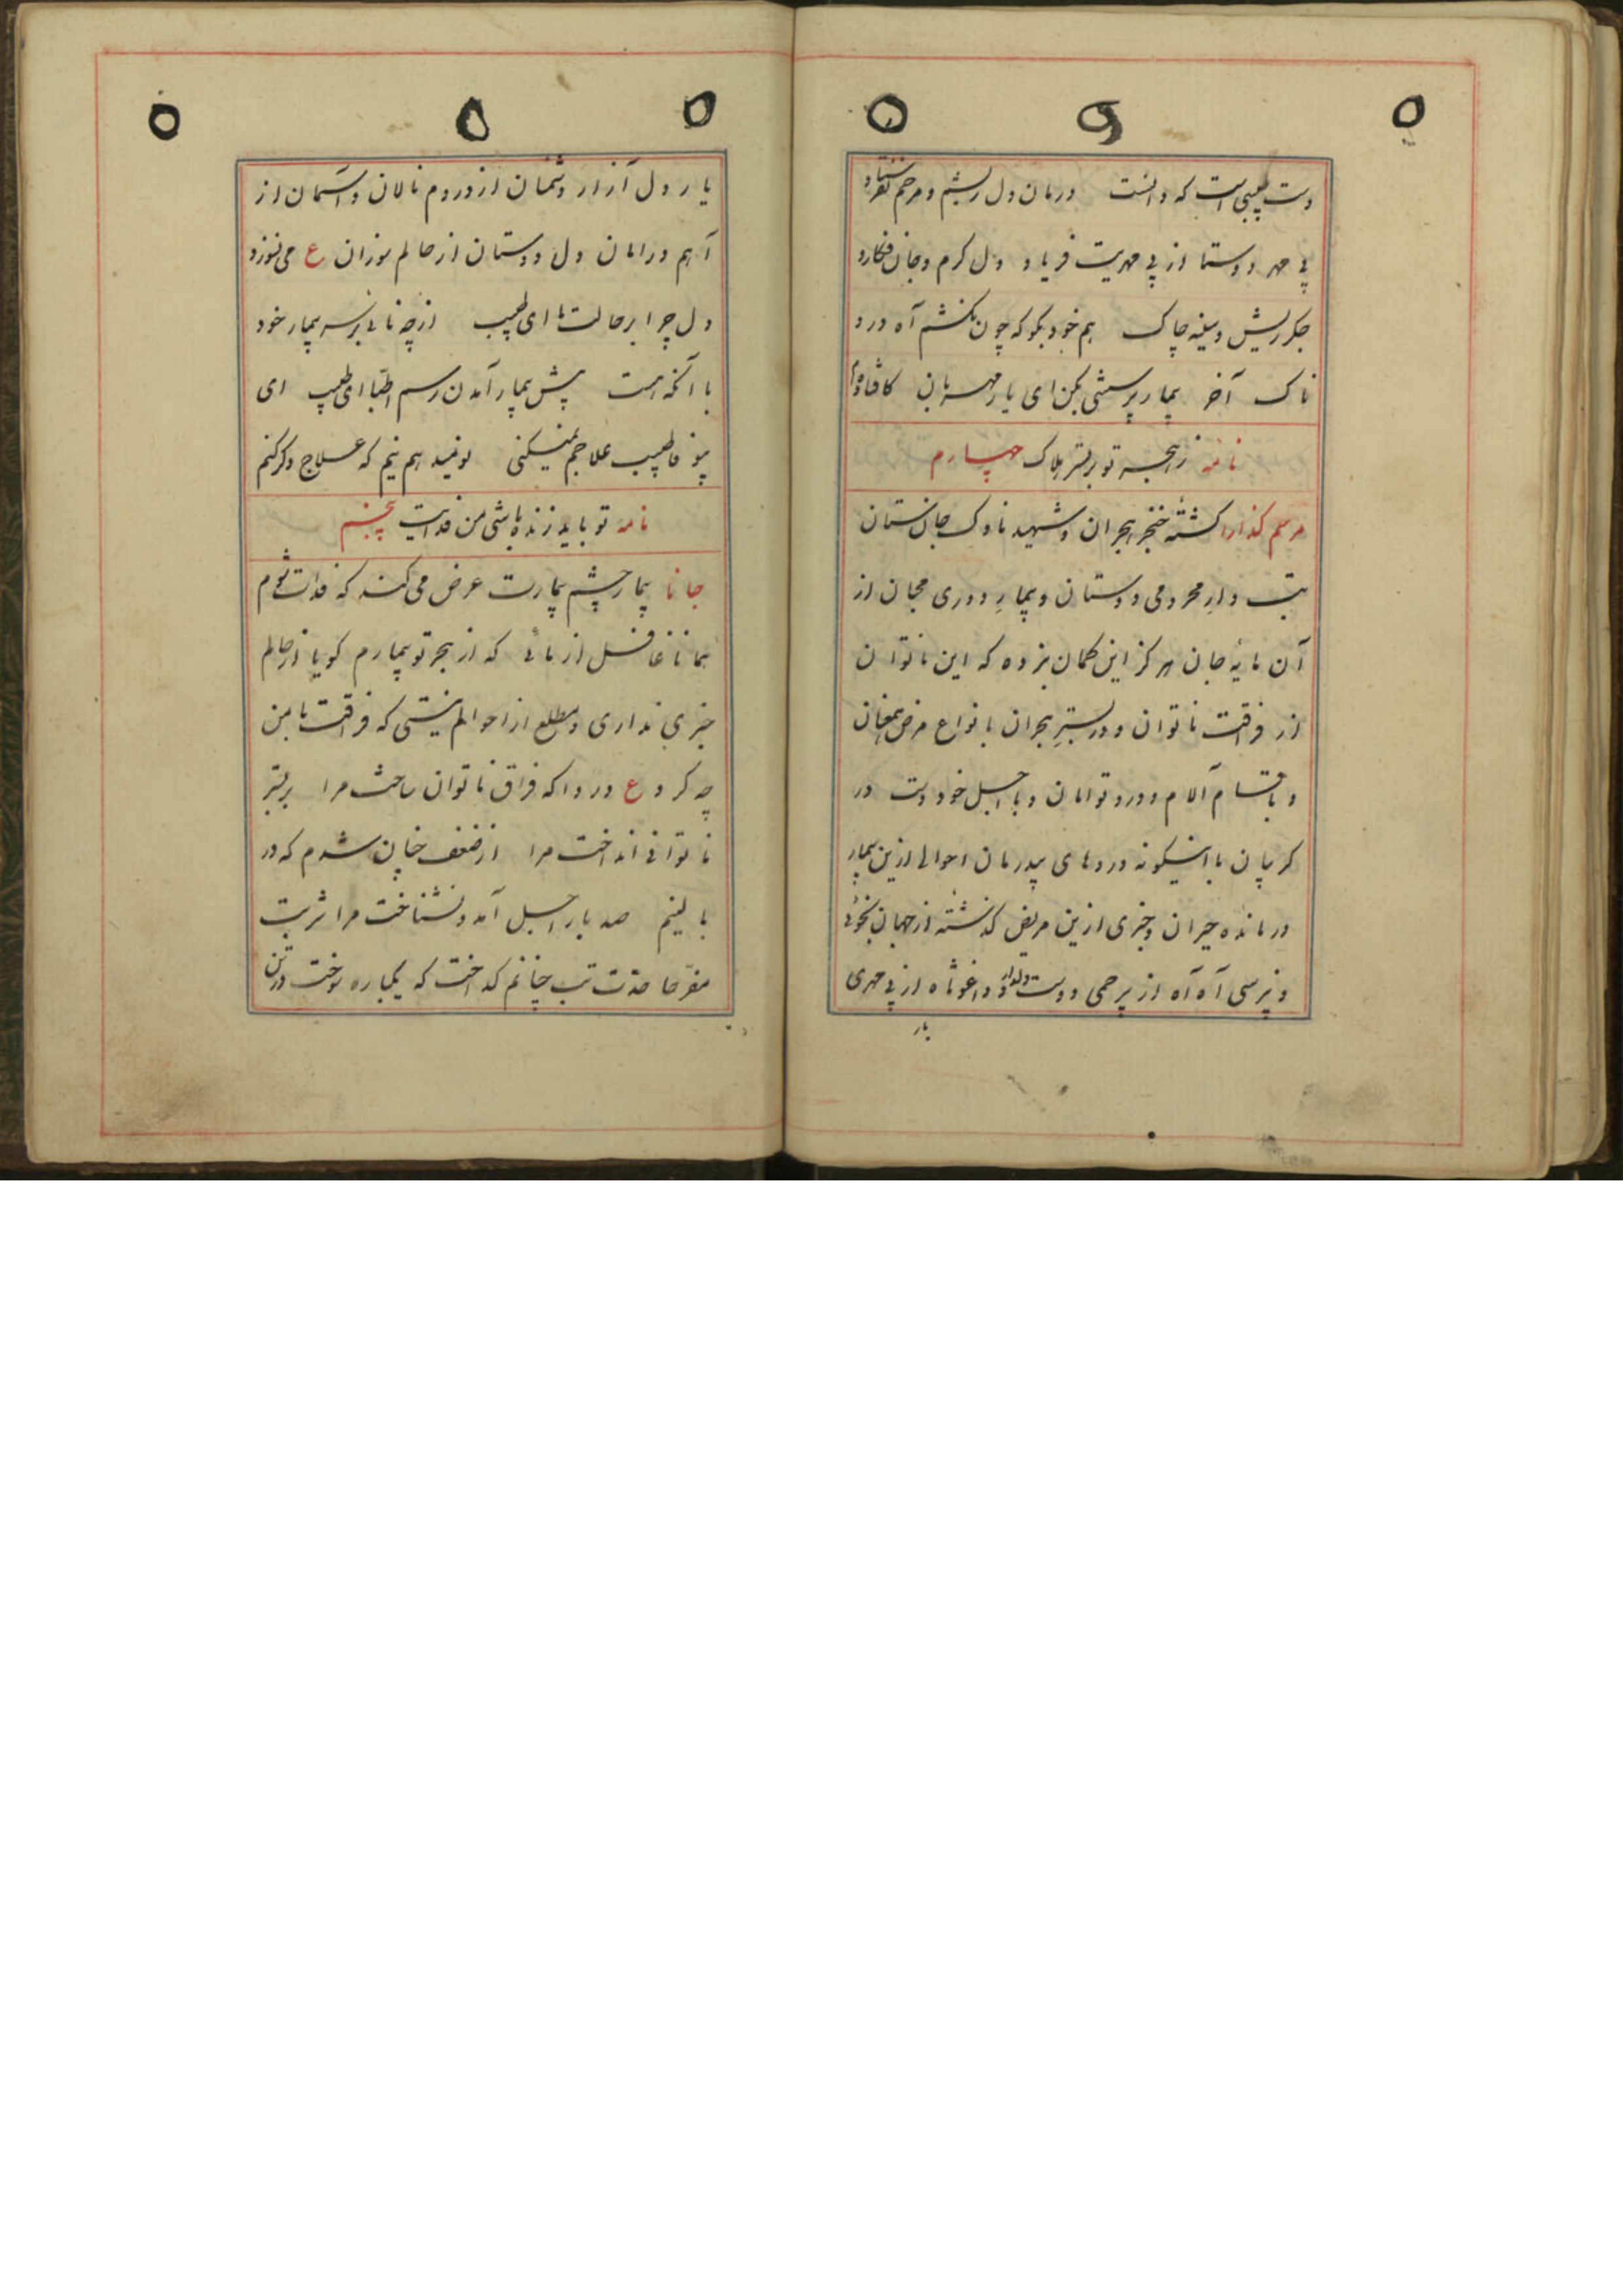 دست طبیبی است که دانست درمان دل ریشم و مرحم نفرستاد
بی مهر دوستا از بی مهریت فریاد دل گرم و جان فکار و
جگر ریش و سینه چاک هم خود بگو که چون نکشم آه درد
ناک آخر بیمار پرسشی بکن ای یار مهربان
نامه ز هجر تو بر بستر هلاک چهارم
مرهم گذارا کشته خنجر هجران و شهید ناوک جان ستان
تب دار محرومی دوستان و بیمار دوری محبان از
آن مایه جان هرگز این گمان نبرده که این ناتوان
از فرقت ناتوان و در بستر هجران بانواع مرض
و باقسام آلام و درد توامان و با اجل خود دست در
گریبان با اینگونه دردهای بیدرمان احوالی ازین بیمار
درمانده حیران و خبری ازین مریض گذشته از جهان نجوئی
و نپرسی آه آه از بیرحمی دوست دلدار و واغوثاه از بی مهری
یار
یار دل آزار دشمنان از درد دم نالان و آسمان از
آهم در امان دل دوستان از حالم سوزان ع می نسوزد
دل چرا بر حالت ما ای طبیب از چه نائی بر سر بیمار خود
با آنکه هست پیش بیمار آمدن رسم اطبا ای طبیب ای
بیوفا طبیب علاجم نمیکنی نومید هم نیم که علاج دگر کنم
نامه تو باید زنده باشی من فدایت پنجم
جانا بیمار چشم بیمارت عرض می کند که فدات شوم
همانا غافل از مائی که از هجر تو بیمارم گویا از حالم
خبری نداری و مطلع از احوالم نیستی که فراقت با من
چه کرد ع دردا که فراق ناتوان ساخت مرا بر بستر
ناتوانی انداخت مرا از ضعف چنان شدم که در
بالینم صد بار اجل آمد و نشناخت مرا شربت
مفرحا حدت تب چنانم گداخت که یکباره سوخت و تن